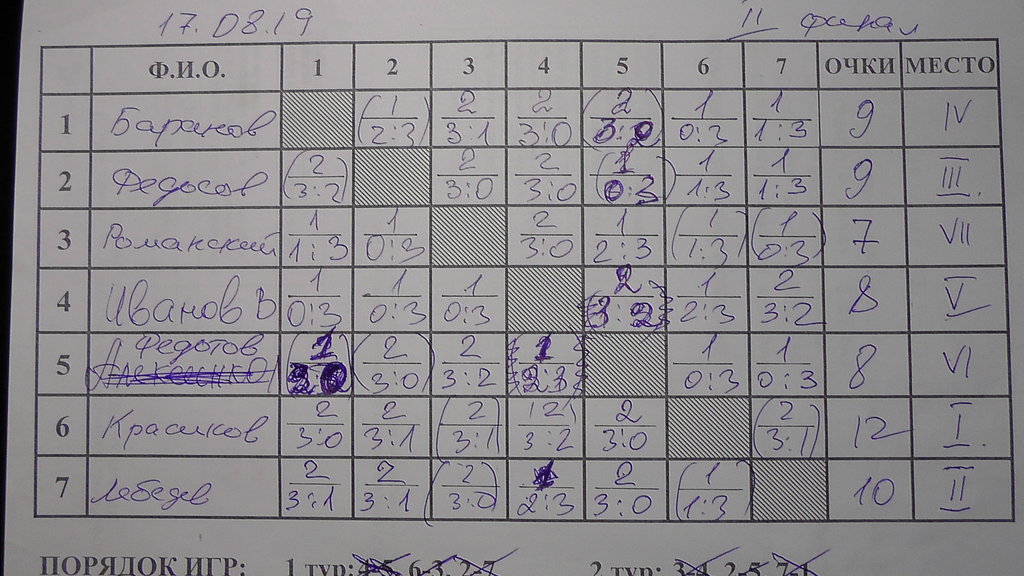 17.08.19 II финал
Ф.И.О. 1 2 3 4 5 6 7 ОЧКИ МЕСТО
1 Баранов (1 2:3) 2 3:1 2 3:0 (2 3:0) 1 0:3 1 1:3 9 IV
2 Федосов (2 3:2) 2 3:0 2 3:0 (1 0:3) 1 1:3 1 1:3 9 III.
3 Романский 1 1:3 1 0:3 2 3:0 1 2:3 (1 1:3) (1 0:3) 7 VII
4 Иванов В 1 0:3 1 0:3 1 0:3 2 3:2 1 2:3 2 3:2 8 V
Федотов
5 (2 3:0) 2 3:2 1 2:3 1 0:3 1 0:3 8 VI
6 Красиков 2 3:0 2 3:1 (2 3:1) 2 3:2 2 3:0 (2 3:1) 12 I.
7 Лебедев 2 3:1 2 3:1 (2 3:0) 1 2:3 2 3:0 (1 1:3) 10 II
ПОРЯДОК ИГР: 1 тур: 4-5, 6-3, 2-7 2 тур: 3-4, 2-5, 7-1